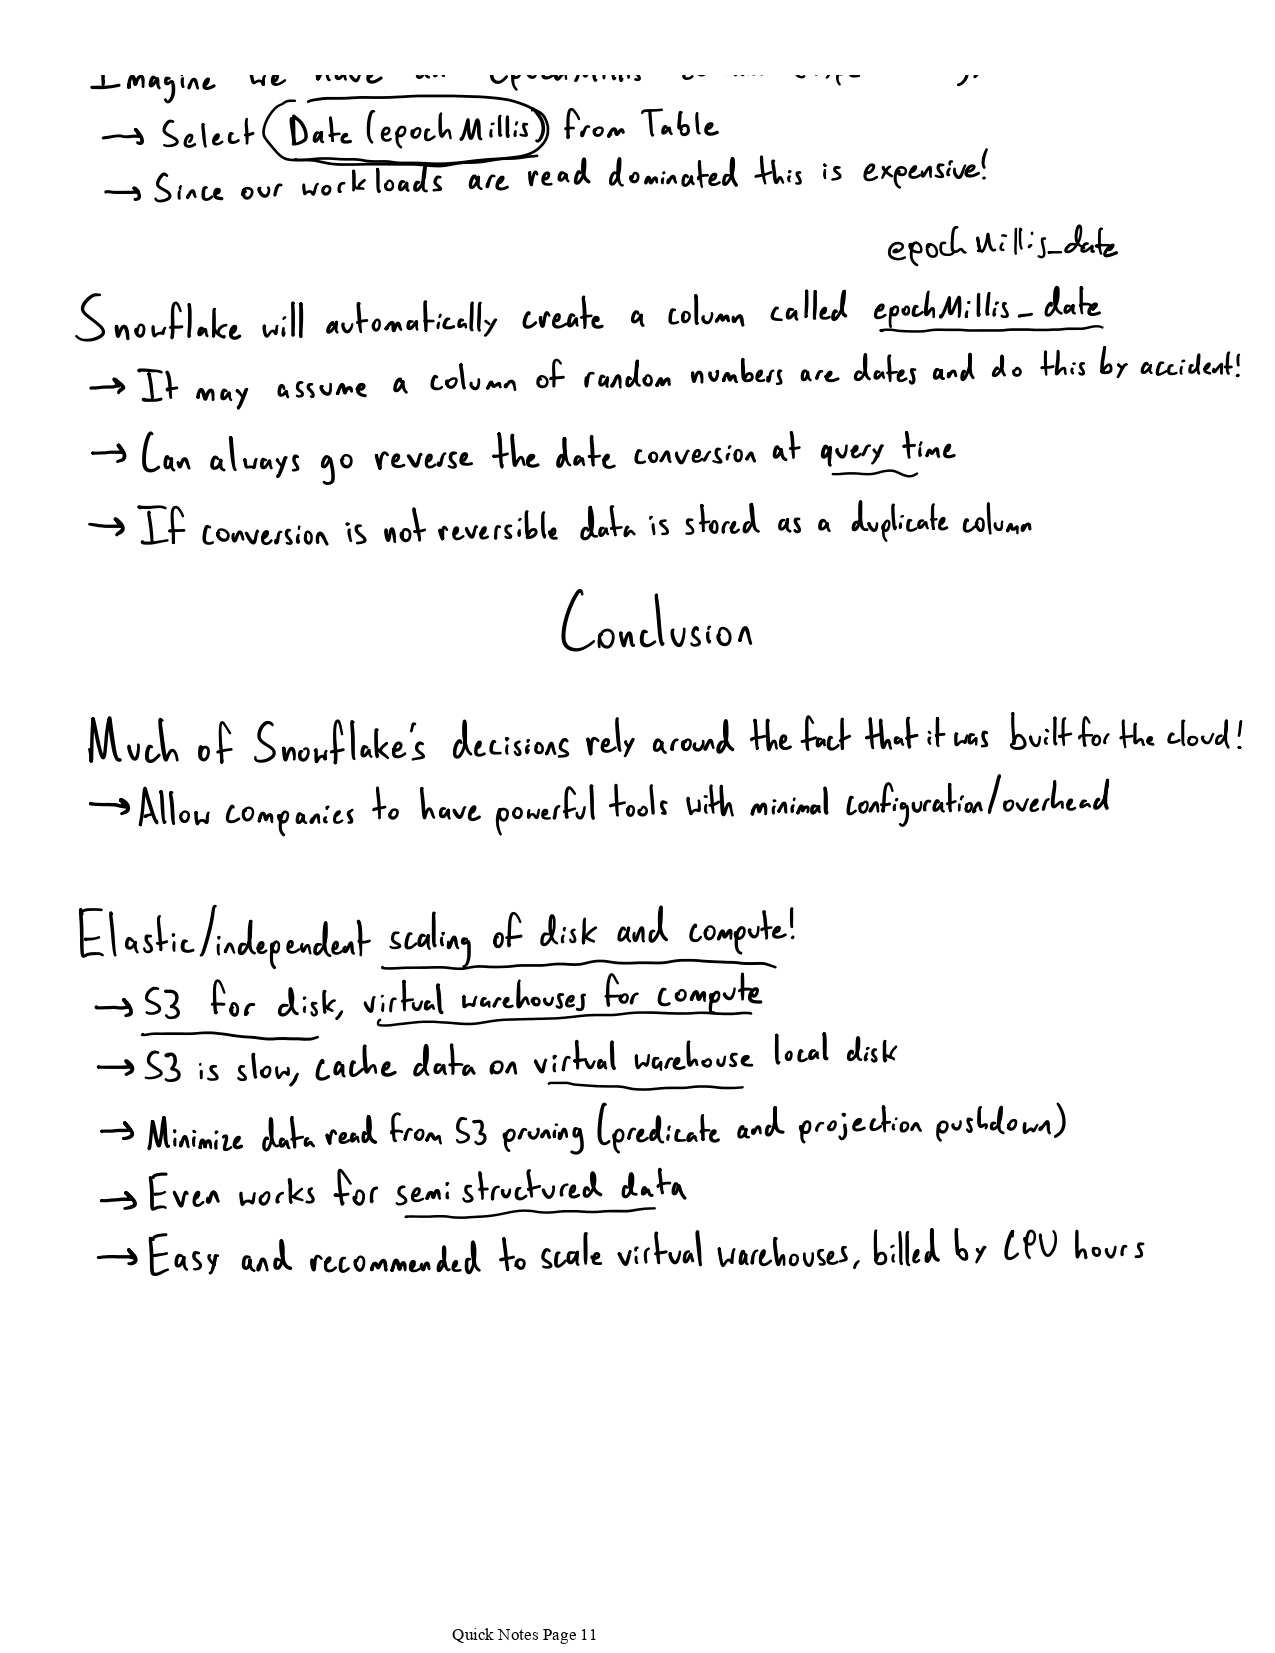 Imagine we have an epochMillis
→ Select Date(epochMillis) from Table
→ Since our workloads are read dominated this is expensive!
epochMillis_date
Snowflake will automatically create a column called epochMillis_date
→ It may assume a column of random numbers are dates and do this by accident!
→ Can always go reverse the date conversion at query time
→ If conversion is not reversible data is stored as a duplicate column
Conclusion
Much of Snowflake's decisions rely around the fact that it was built for the cloud!
→ Allow companies to have powerful tools with minimal configuration/overhead
Elastic/independent scaling of disk and compute!
→ S3 for disk, virtual warehouses for compute
→ S3 is slow, cache data on virtual warehouse local disk
→ Minimize data read from S3 pruning (predicate and projection pushdown)
→ Even works for semi structured data
→ Easy and recommended to scale virtual warehouses, billed by CPU hours
Quick Notes Page 11